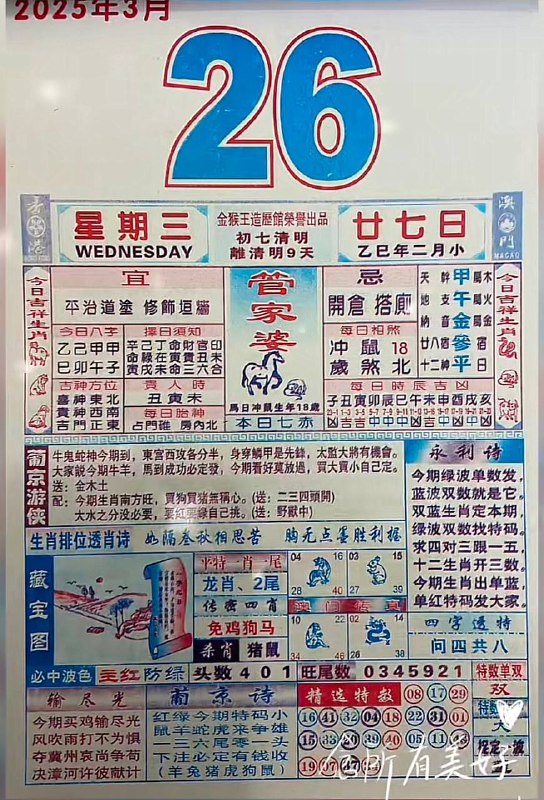 2025年3月
26
香港
星期三
WEDNESDAY
金猴王造歷館榮譽出品
初七清明
離清明9天
廿七日
乙巳年二月小
澳門
MACAU
今日吉祥生肖
宜
平治道塗 修飾垣牆
今日八字
乙己甲甲
巳卯午子
擇日須知
吉神方位
喜神東北
貴神西南
吉門正東
貴人時
丑寅未
每日胎神
占門碓 房內北
管家婆
馬日冲鼠生年18歲
本日七赤
忌
開倉 搭廁
每日相煞
冲鼠18
歲煞北
天幹甲屬木
地支午屬火
納音金屬金
廿八宿參宿
十二神平日
每日時辰吉凶
子丑寅卯辰巳午未申酉戌亥
今日吉祥生肖
葡京游俠
牛鬼蛇神今期到，東宮西攻各分半，身穿鱗甲是先鋒，太監大將有機會。
大家説今期牛羊，馬到成功必定發，今期看好莫放過，買大買小自己定。
送：金木土
配：今期生肖南方旺，買狗買豬無稱心。(送：二三四頭開)
大水之分没必要，要紅要綠自己挑。(送：野獸中)
永利诗
今期绿波单数发，
蓝波双数就是它。
双蓝生肖定本期，
绿波双数找特码。
求四对三跟一五，
十二生肖开三数。
今期生肖出单蓝，
单红特码发大家。
生肖排位透肖诗 如隔叁秋相思苦 胸无点墨胜利握
藏宝图
平特一肖一尾
龙肖、2尾
传密四肖
免鸡狗马
杀肖 猪鼠
04 16
28 40
03 15
39
澳门传真
10 22
34 46
四字透特
问四共八
必中波色 主红防绿 头数401 旺尾数 0345921 特数单双
双
输尽光
今期买鸡输尽光
风吹雨打不为惧
夺冀州哀尚争荀
决漳河许彼献计
葡京诗
红绿今期特码小
鼠羊蛇虎来争雄
一三六尾零一头
下注必定有钱收
(羊兔猪虎狗鼠)
精选特数 08 17 29
16 41 32 04 18 22 31 01
15 33 20
19 07 47
大
@所有美好